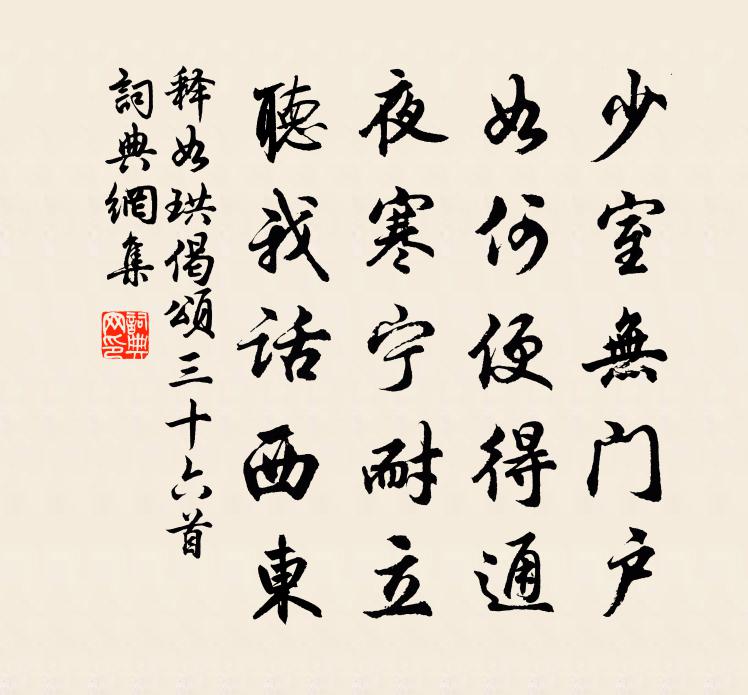 少室無门户
如何便得通
夜寒宁耐立
聽我话西東
释如珙偈頌三十六首
詞典網集
詞典网印